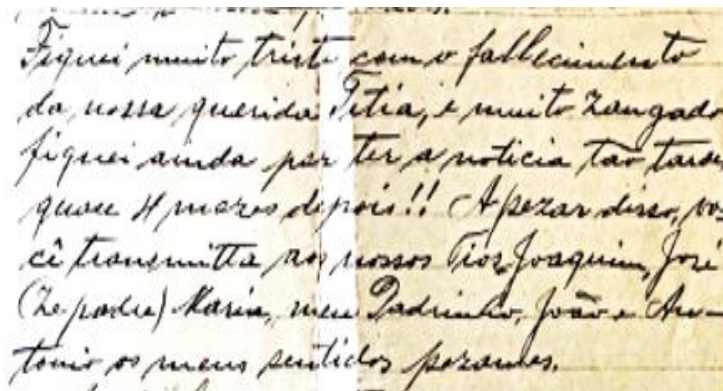 Fiquei muito triste com o fallecimento
da nossa querida Titia, e muito zangado
fiquei ainda por ter a noticia tão tarde
quase 4 mezes depois!! Apezar disso, vo-
cê transmitta aos nossos Tios, Joaquim, José
(Zé padre) Maria, meu Padrinho, João e An-
tonio os meus sentidos pezames.